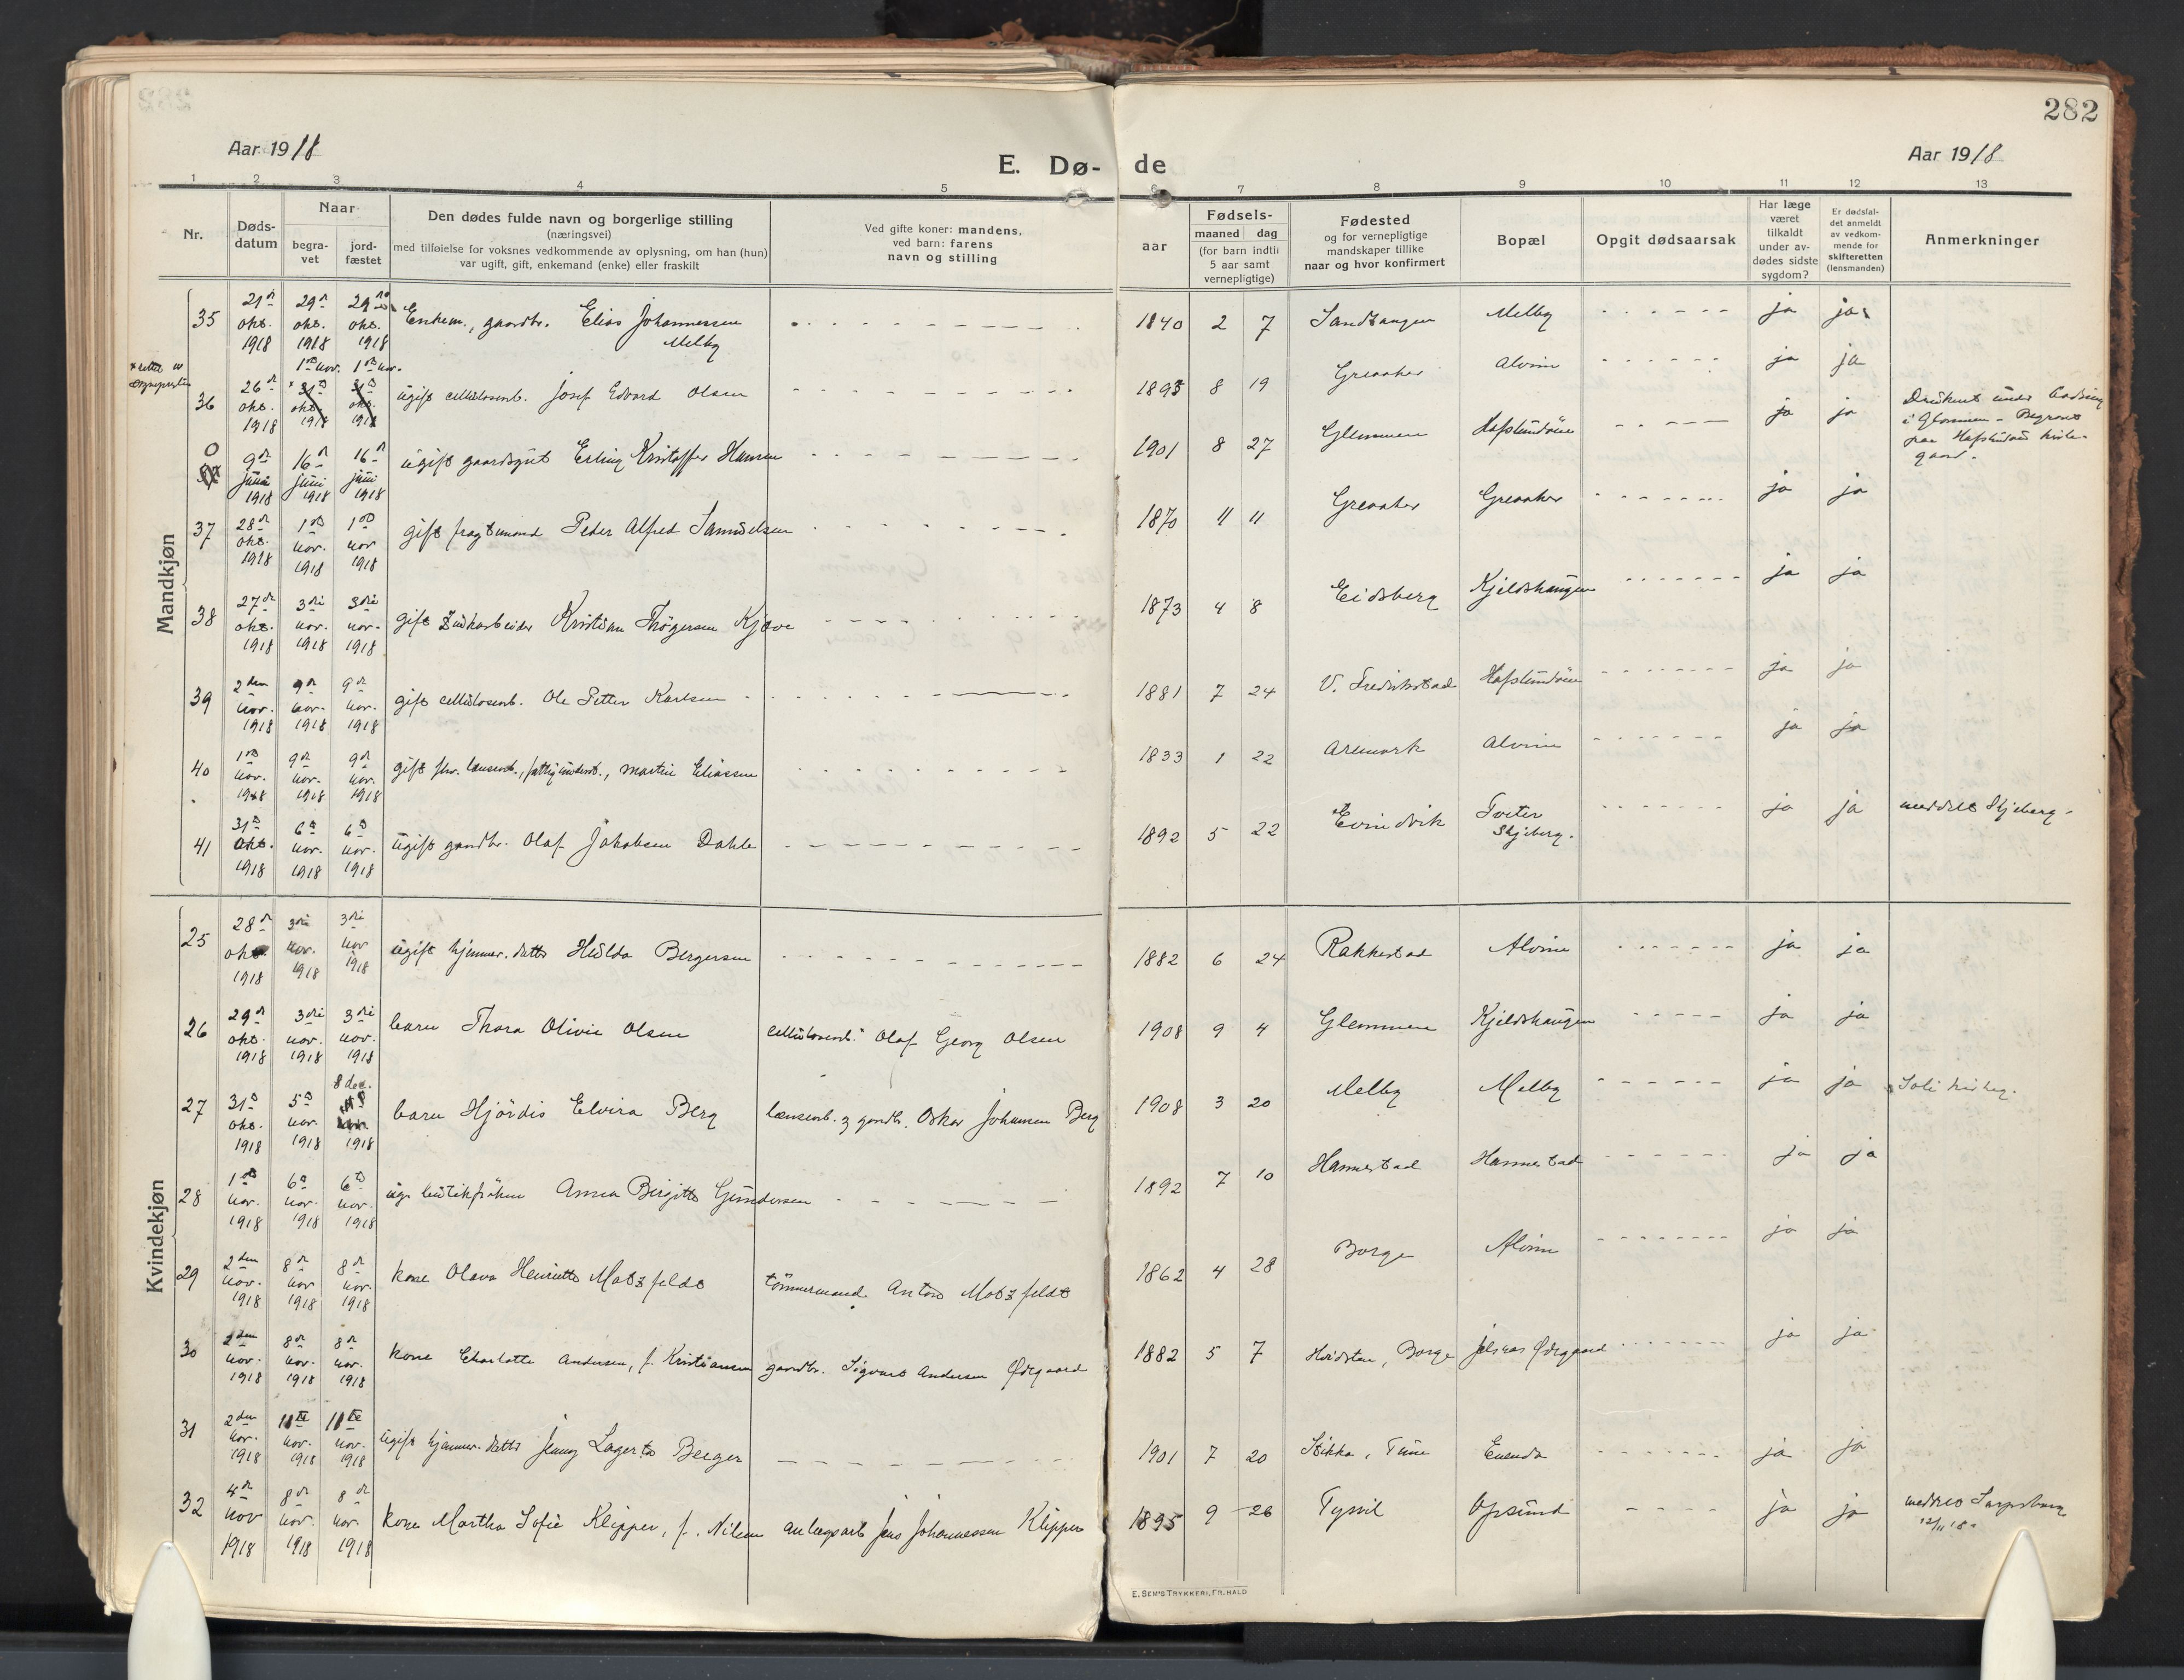 282
Aar 1918
E. Dø- de
Aar 1918
1 2 3 4 5 6 7 8 9 10 11 12 13
Nr.
Døds-
datum
Naar
begra-
vet
jord-
fæstet
Den dødes fulde navn og borgerlige stilling
(næringsvei)
med tilføielse for voksnes vedkommende av oplysning, om han (hun)
var ugift, gift, enkemand (enke) eller fraskilt
Ved gifte koner: mandens,
ved barn: farens
navn og stilling
aar
Fødsels-
maaned dag
(for barn indtil
5 aar samt
vernepligtige)
Fødested
og for vernepligtige
mandskaper tillike
naar og hvor konfirmert
Bopæl
Opgit dødsaarsak
Har læge
været
tilkaldt
under av-
dødes sidste
sygdom?
Er dødsfal-
det anmeldt
av vedkom-
mende for
skifteretten
(lensmanden)
Anmerkninger
Mandkjøn
35 21de okt. 1918 29de okt. 1918 29de okt. 1918 Enkem., gaardbr. Elias Johannessen Melby 1840 2 7 Sandtangen Melby ja ja
36 26de okt. 1918 1ste nov. 31te okt. 1918 1ste nov. 31te okt. 1918 ugift cellulosearb. Josef Edvard Olsen 1895 8 19 Greaaker Alvim ja ja
0 9de juni 1918 16de juni 1918 16de juni 1918 ugift gaardsgut Erling Kristoffer Hansen 1901 8 27 Glemmen Hafslundsøen ja ja Druknet under badning
i Glommen - Begravet
paa Hafslund kirke-
gaard.
37 28de okt. 1918 1ste nov. 1918 1ste nov 1918 gift fragtemand Peder Alfred Samuelsen 1870 11 11 Greaaker Greaaker ja ja
38 27de okt. 1918 3die nov. 1918 3die nov. 1918 gift Kristian Thøgersen Kjøve 1873 4 8 Eidsberg Kjeldshaugen ja ja
39 2den nov. 1918 9de nov. 1918 9de nov. 1918 gift cellulosearb. Ole Petter Karlsen 1881 7 24 V. Fredrikstad Hafslundsøen ja ja
40 1ste nov. 1918 9de nov. 1918 9de nov. 1918 gift fhv. lensearb., fattigunderst., Martin Eliassen 1833 1 22 Aremark Alvim ja ja
41 31te okt. 1918 6te nov. 1918 6te nov. 1918 ugift gaardbr. Olaf Jakobsen Dahle 1892 5 22 Evindvik Tveter
Skjeberg. ja ja meddelt Skjeberg.
Kvindekjøn
25 28de okt. 1918 3die nov. 1918 3die nov 1918 ugift hjemmev. datter Hulda Bergersen 1882 6 24 Rakkestad Alvim ja ja
26 29de okt. 1918 3die nov. 1918 3die nov. 1918 barn Thora Olivie Olsen cellulosearb. Olaf Georg Olsen 1908 9 4 Glemmen Kjeldshaugen ja ja
27 31te okt. 1918 5te nov. 1918 8 dec. 1918 barn Hjördis Elvira Berg lænsearb. & gaardbr. Oskar Johansen Berg 1908 3 20 Melby Melby ja ja Soli kirkeg.
28 1ste nov. 1918 6te nov. 1918 6te nov. 1918 ug. butikfrøken Anna Birgitte Gundersen 1892 7 10 Hannestad Hannestad ja ja
29 2den nov. 1918 8de nov 1918 8de nov. 1918 kone Olava Henriette Motzfeldt tömmermand Anton Motzfeldt 1862 4 28 Borge Alvim ja ja
30 2den nov. 1918 8de nov. 1918 8de nov. 1918 kone Charlotte Andersen, f. Kristiansen gaardbr. Sigvart Andersen Ødegaard 1882 5 7 Hvidsten, Borge Jelsnes Ødegaard ja ja
31 2den nov. 1918 11te nov. 1918 11te nov. 1918 ugift hjemmev. datter Jenny Lagerta Berger 1901 7 20 Stikka, Tune Enenda ja ja
32 4de nov 1918 8de nov. 1918 8de nov. 1918 kone Martha Sofie Klipper, f. Nilsen anlægsarb. Jens Johannessen Klipper 1895 9 26 Opsund ja ja meddelt Sarpsborg
12/11 18.
E. SEM'S TRYKKERI, FR.HALD